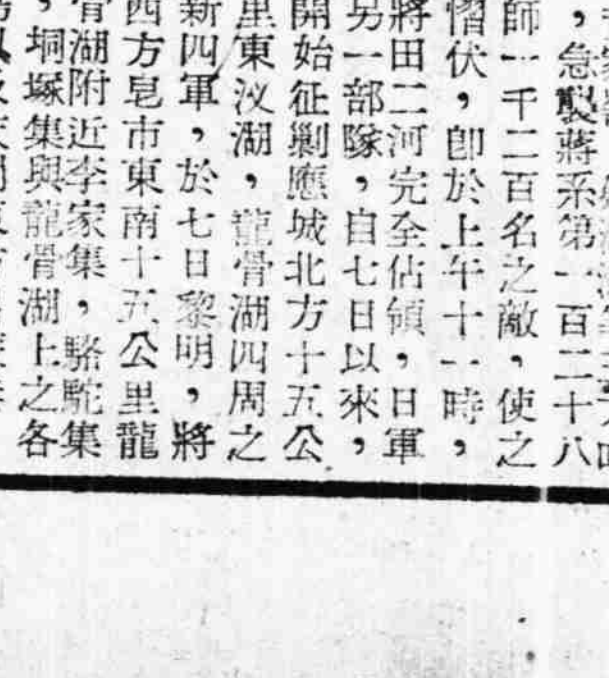 ，急製蔣系第一百二十八
師一千二百名之敵，使之
慴伏，卽於上午十一時，
將田二河完全佔領，日軍
另一部隊，自七日以來，
開始征剿應城北方十五公
里東汊湖，龍骨湖四周之
新四軍，於七日黎明，將
西方皂市東南十五公里龍
骨湖附近李家集，駱駝集
，垌塚集與龍骨湖上之各